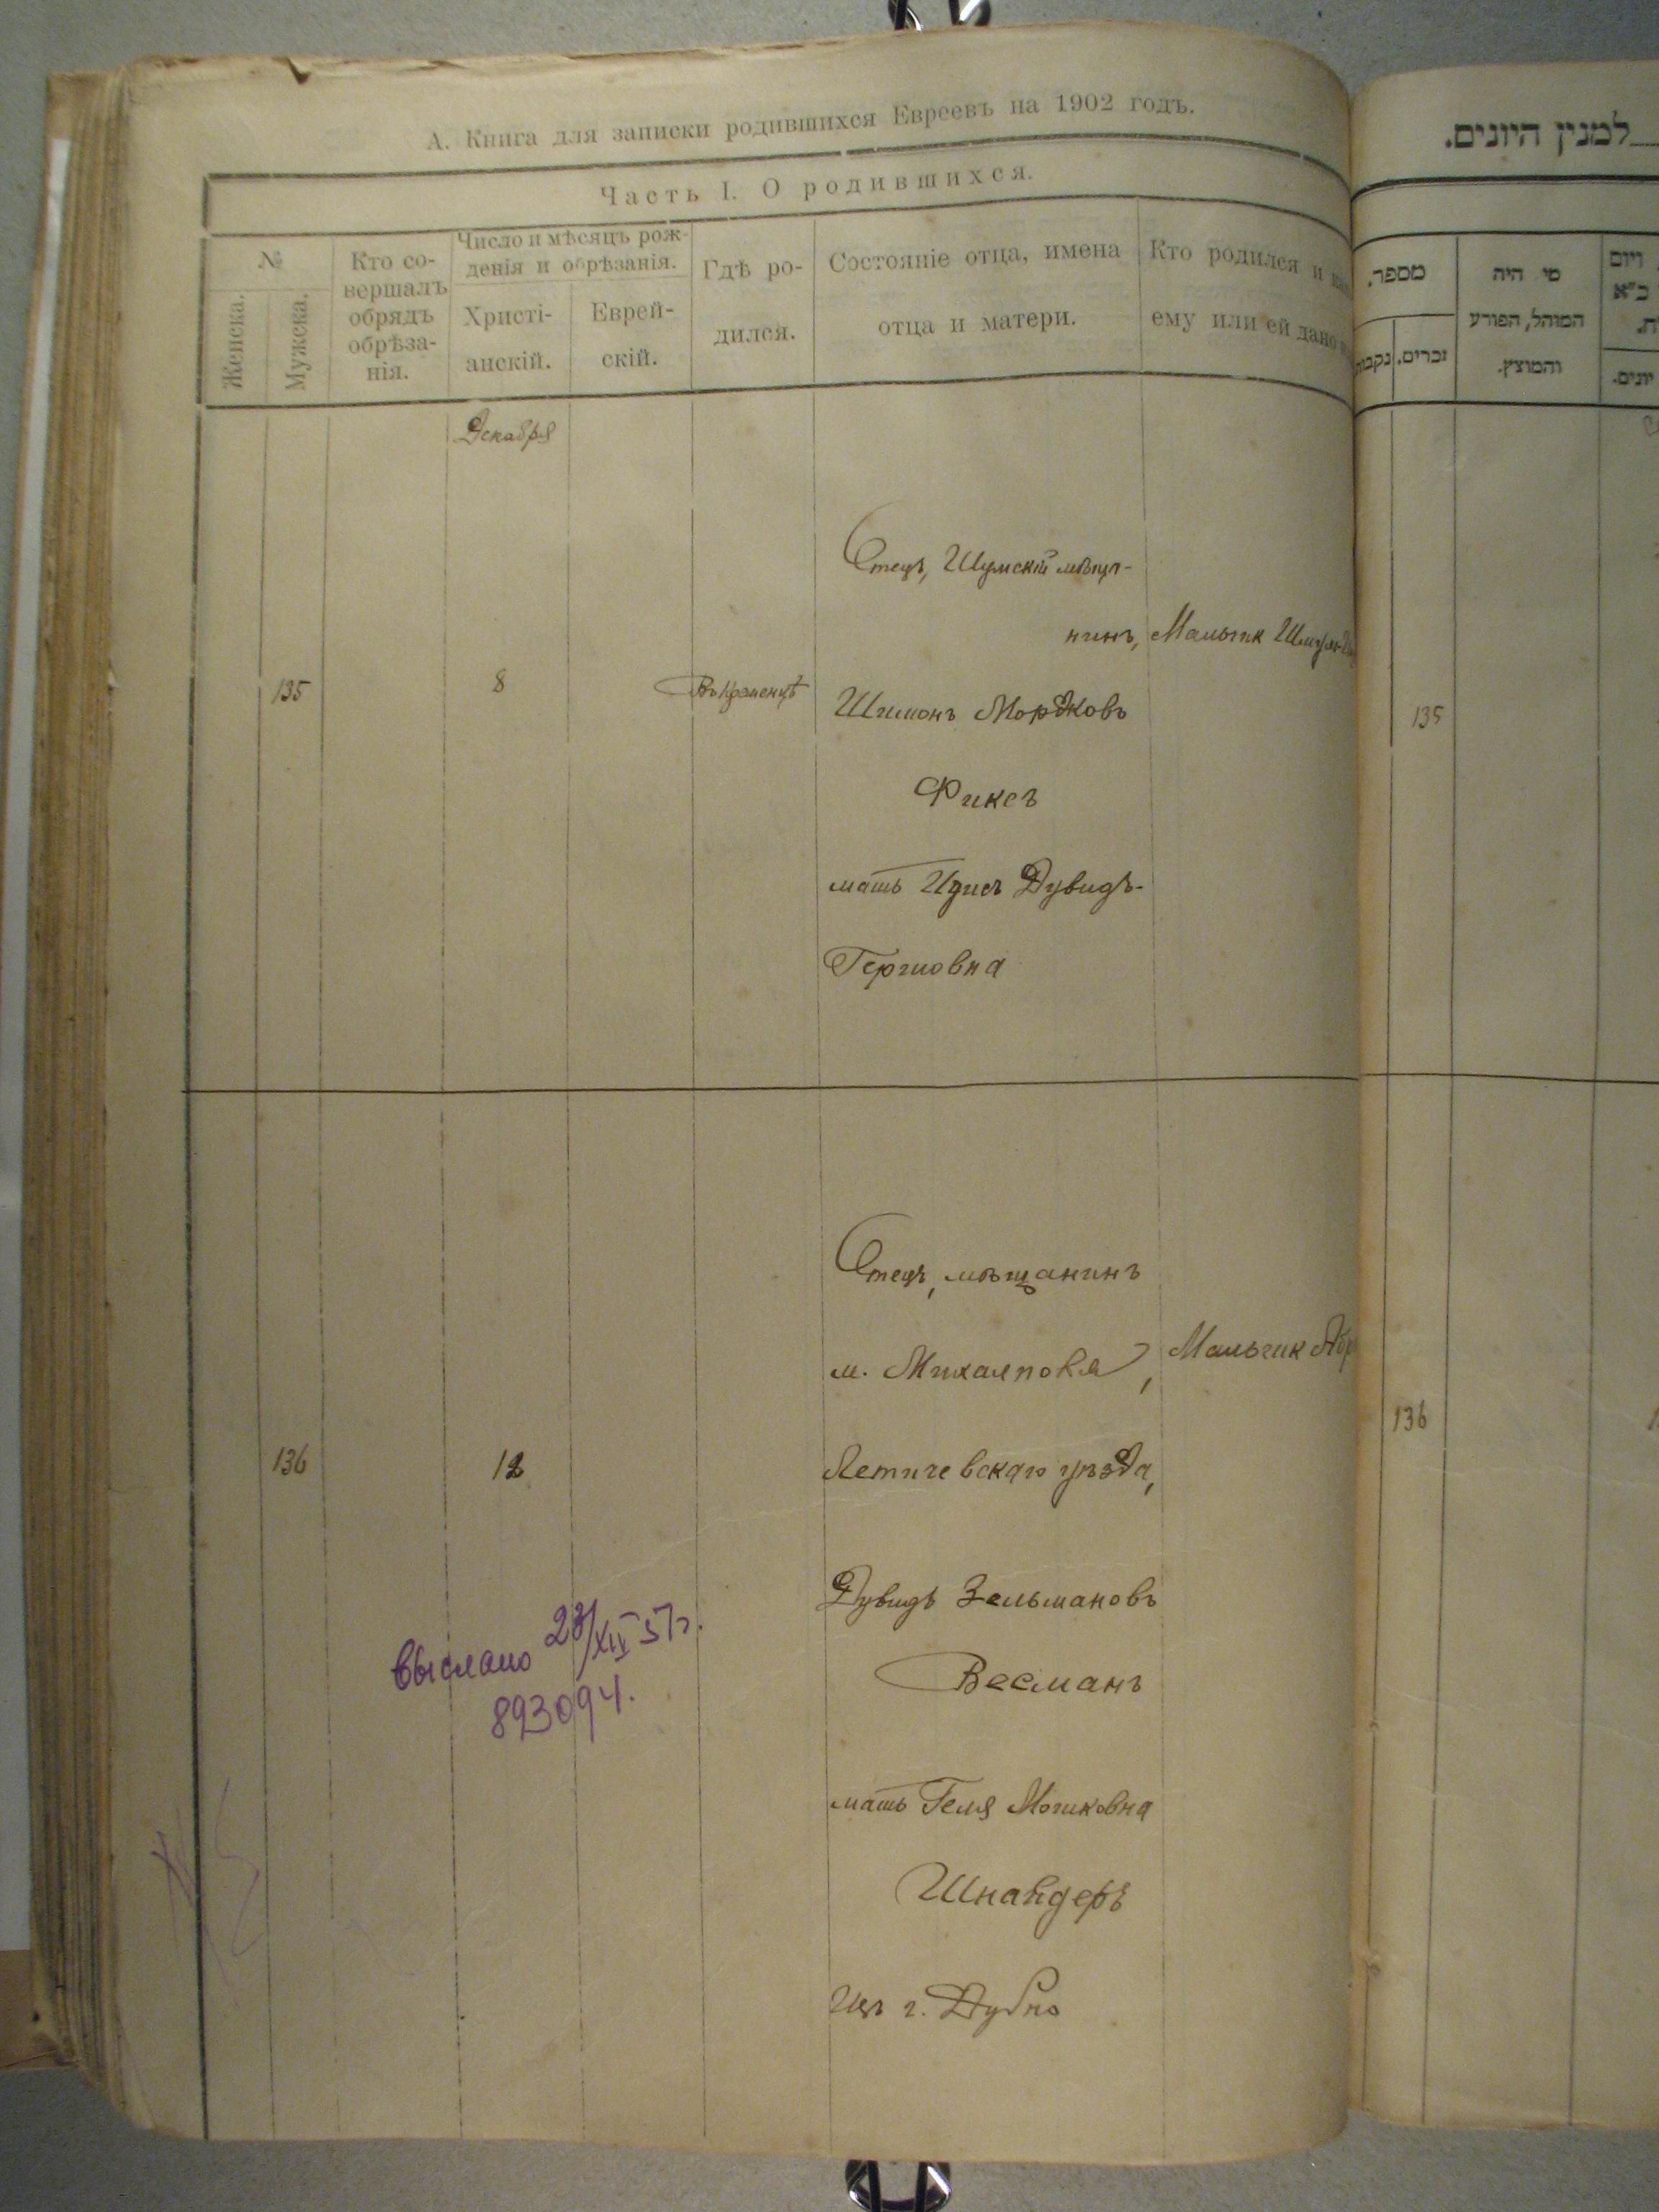 А. Книга для записки родившихся Евреевъ на 1902 годъ.
Часть I. О родившихся.
№
Женска.
Мужска.
Кто со-
вершалъ
обрядъ
обрѣза-
нія.
Число и мѣсяцъ рож-
денія и обрѣзанія.
Христі-
анскій.
Еврей-
скій.
Гдѣ ро-
дился.
Состояніе отца, имена
отца и матери.
Кто родился и
ему или ей дано
Декабря
135
8
Въ Кременцѣ
Отецъ, Шумскій мѣща-
нинъ,
Шимонъ Мордковъ
Фиксъ
мать Идисъ Дувидъ-
Гершовна
Мальчик
136
12
Отецъ, мѣщанинъ
м. Михалполя,
Летичевскаго уѣзда,
Дувидъ Зельмановъ
Весманъ
мать Геля Мошковна
Шнайдеръ
изъ г. Дубно
Мальчик
Выслано 28/XII 57г.
893094.
למנין היונים.
מספר.
זכרים.
מי היה
המוהל, הפורע
והמוצץ.
ויום
יונים.
135
136